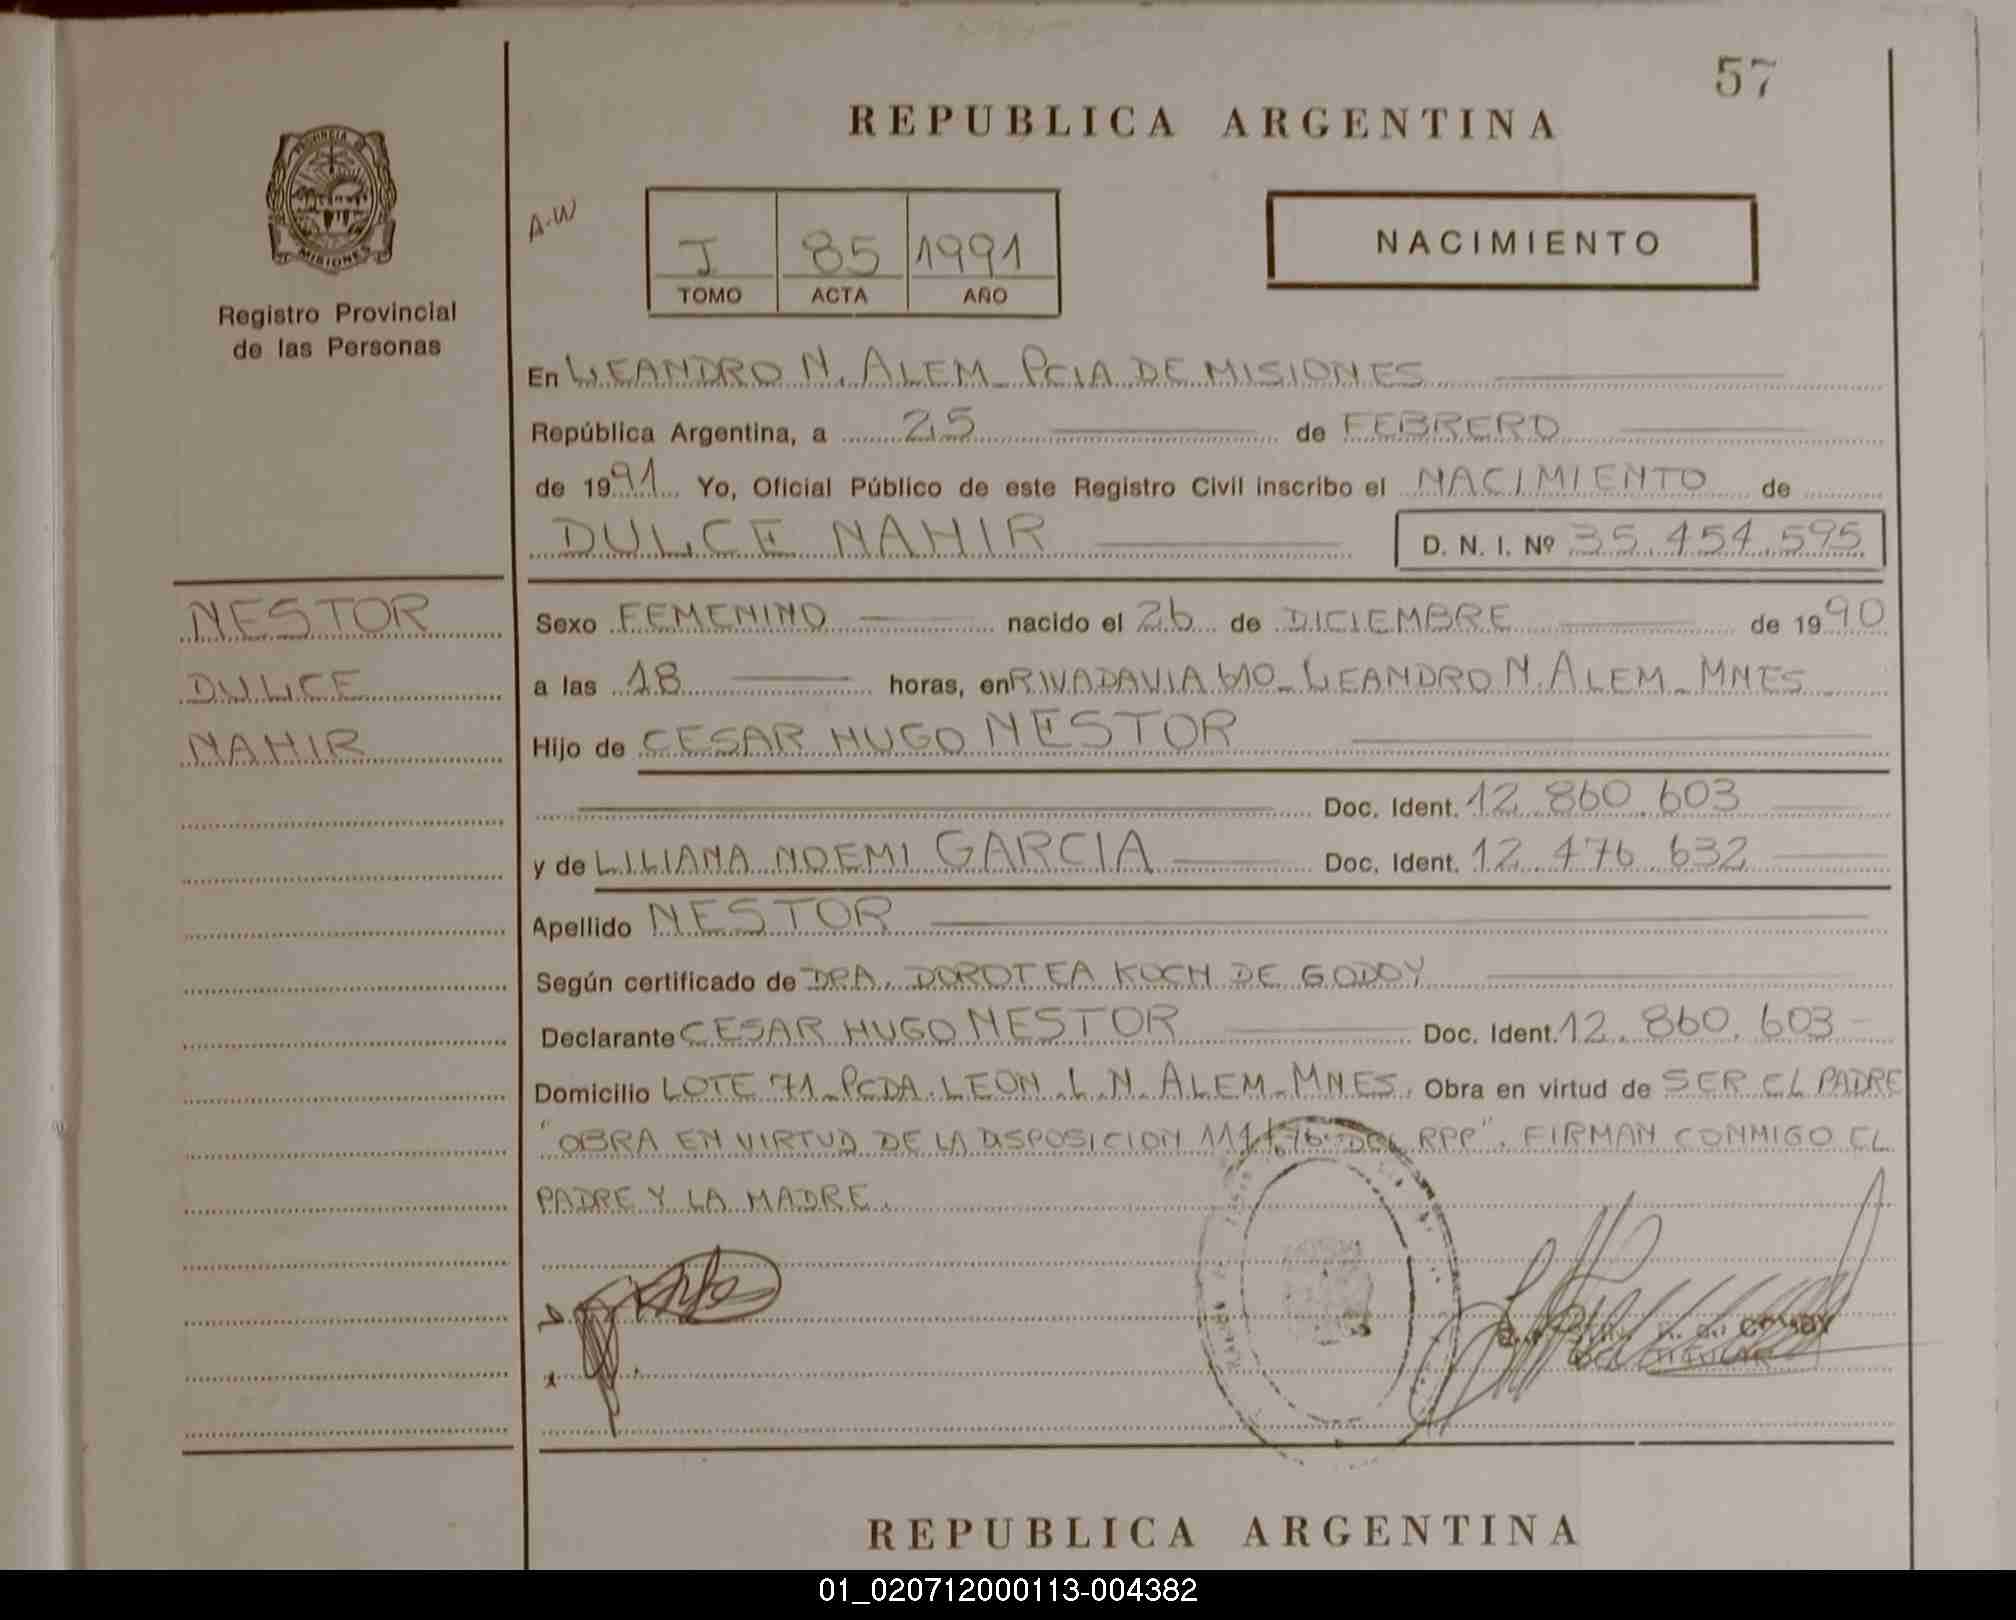 57
REPUBLICA ARGENTINA
PROVINCIA DE
MISIONES
Registro Provincial
de las Personas
A-W
I 85 1991
TOMO ACTA AÑO
NACIMIENTO
En LEANDRO N. ALEM_ PCIA DE MISIONES
República Argentina, a 25 de FEBRERO
de 1991 Yo, Oficial Público de este Registro Civil inscribo el NACIMIENTO de
DULCE NAHIR D. N. I. Nº 35.454.595
NESTOR
DULCE
NAHIR
Sexo FEMENINO nacido el 26 de DICIEMBRE de 1990
a las 18 horas, en RIVADAVIA 610_ LEANDRO N. ALEM_ MNES
Hijo de CESAR HUGO NESTOR
Doc. Ident. 12.860.603
y de LILIANA NOEMI GARCIA Doc. Ident. 12.476.632
Apellido NESTOR
Según certificado de DRA. DOROTEA KOCH DE GODOY
Declarante CESAR HUGO NESTOR Doc. Ident. 12.860.603
Domicilio LOTE 71_ PCDA. LEON. L.N. ALEM_ MNES. Obra en virtud de SER EL PADRE
"OBRA EN VIRTUD DE LA DISPOSICION 111/76 DEL RPP". FIRMAN CONMIGO EL
PADRE Y LA MADRE.
REPUBLICA ARGENTINA
01_020712000113-004382